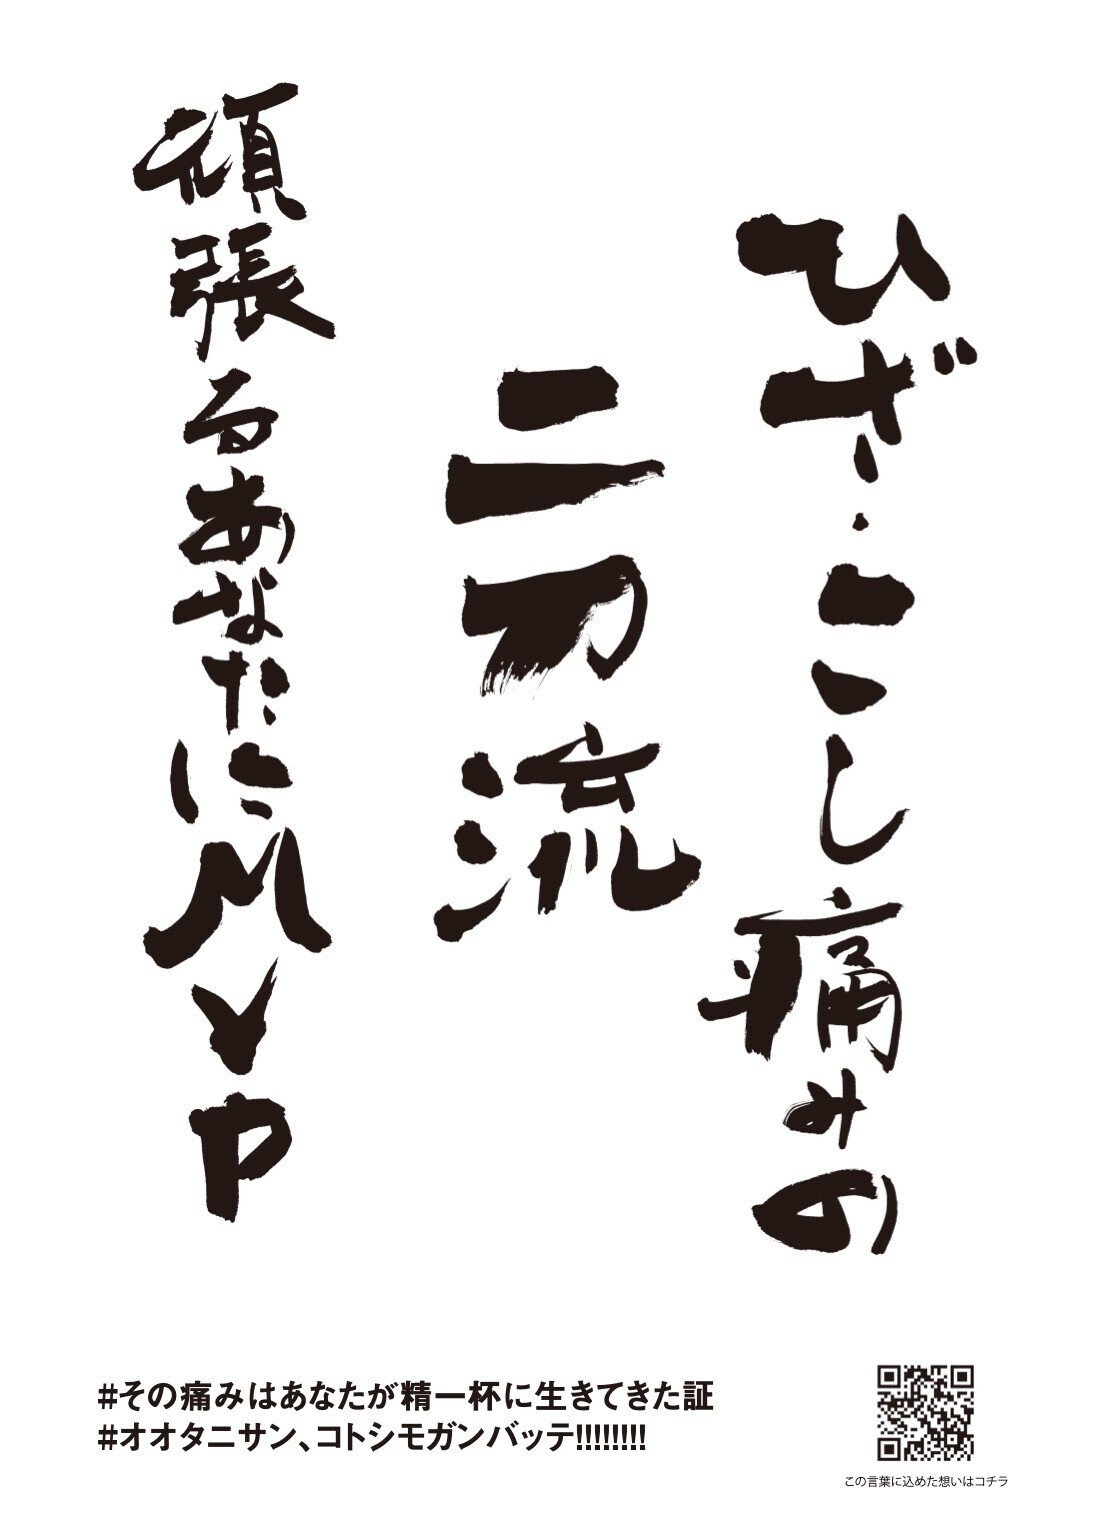 ひざ・こし痛みの
二刀流
頑張るあなたにMVP
#その痛みはあなたが精一杯に生きてきた証
#オオタニサン、コトシモガンバッテ!!!!!!!!
この言葉に込めた想いはコチラ